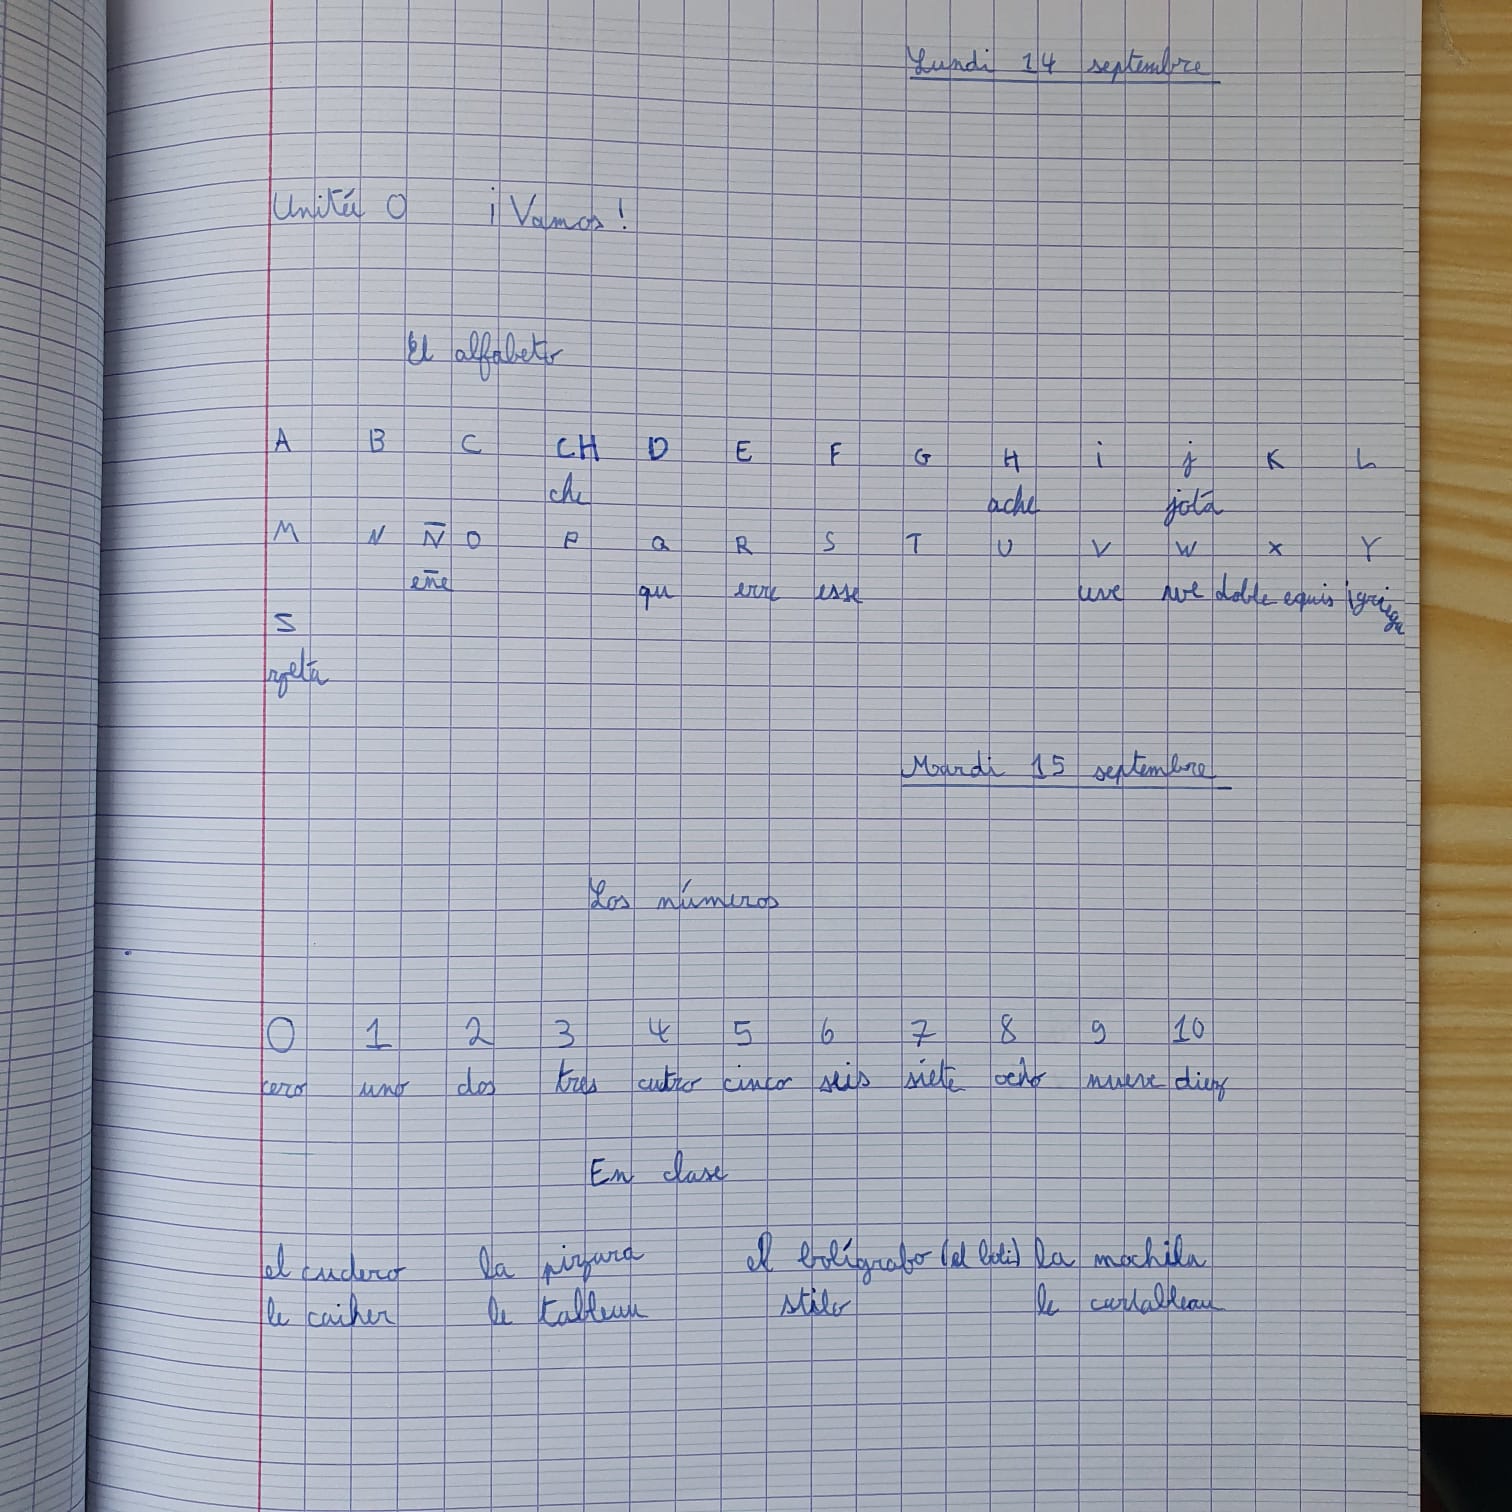 Lundi 14 septembre
Unité 0 ¡Vamos!
El alfabeto
A B C CH D E F G H i j K L
che ache jota
M N Ñ O P Q R S T U V W X Y
eñe qu erre esse uve uve doble equis igriega
S
zeta
Mardi 15 septembre
Los números
0 1 2 3 4 5 6 7 8 9 10
cero uno dos tres cutro cinco seis siete ocho nueve diez
En clase
el cudero la pizara el bolígrabo (el boli) la mochila
le caiher le tableau stilo le curtalbleau